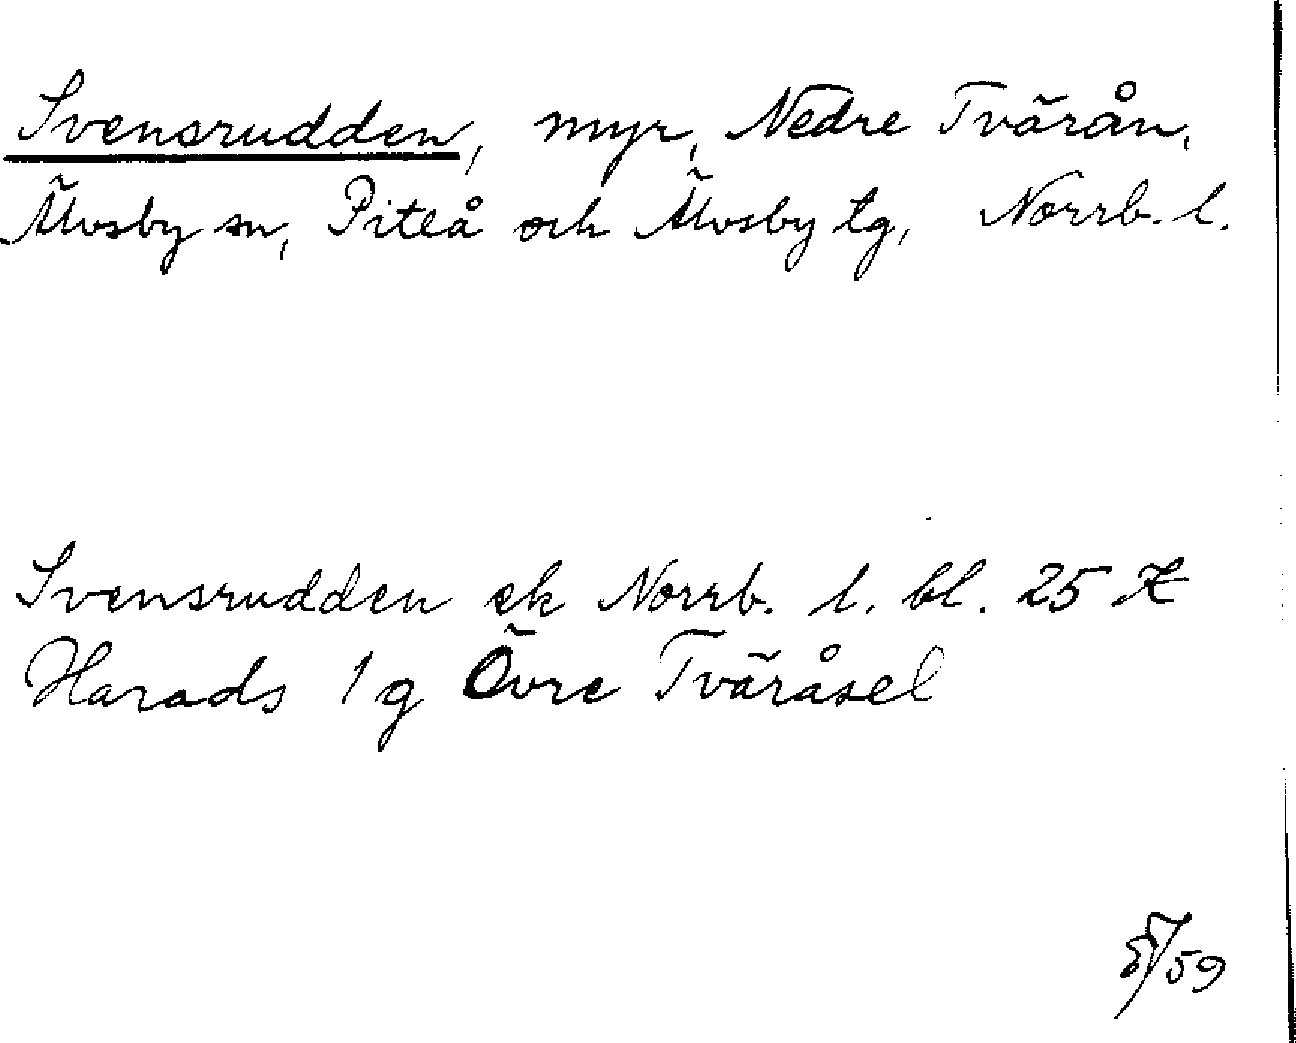 Svensrudden, myr, Nedre Tvärån,
Älvsby sn, Piteå och Älvsby tg, Norrb. l.
Svensrudden ek Norrb. l. bl. 25 K
Harads 1 g Övre Tväråsel
/59